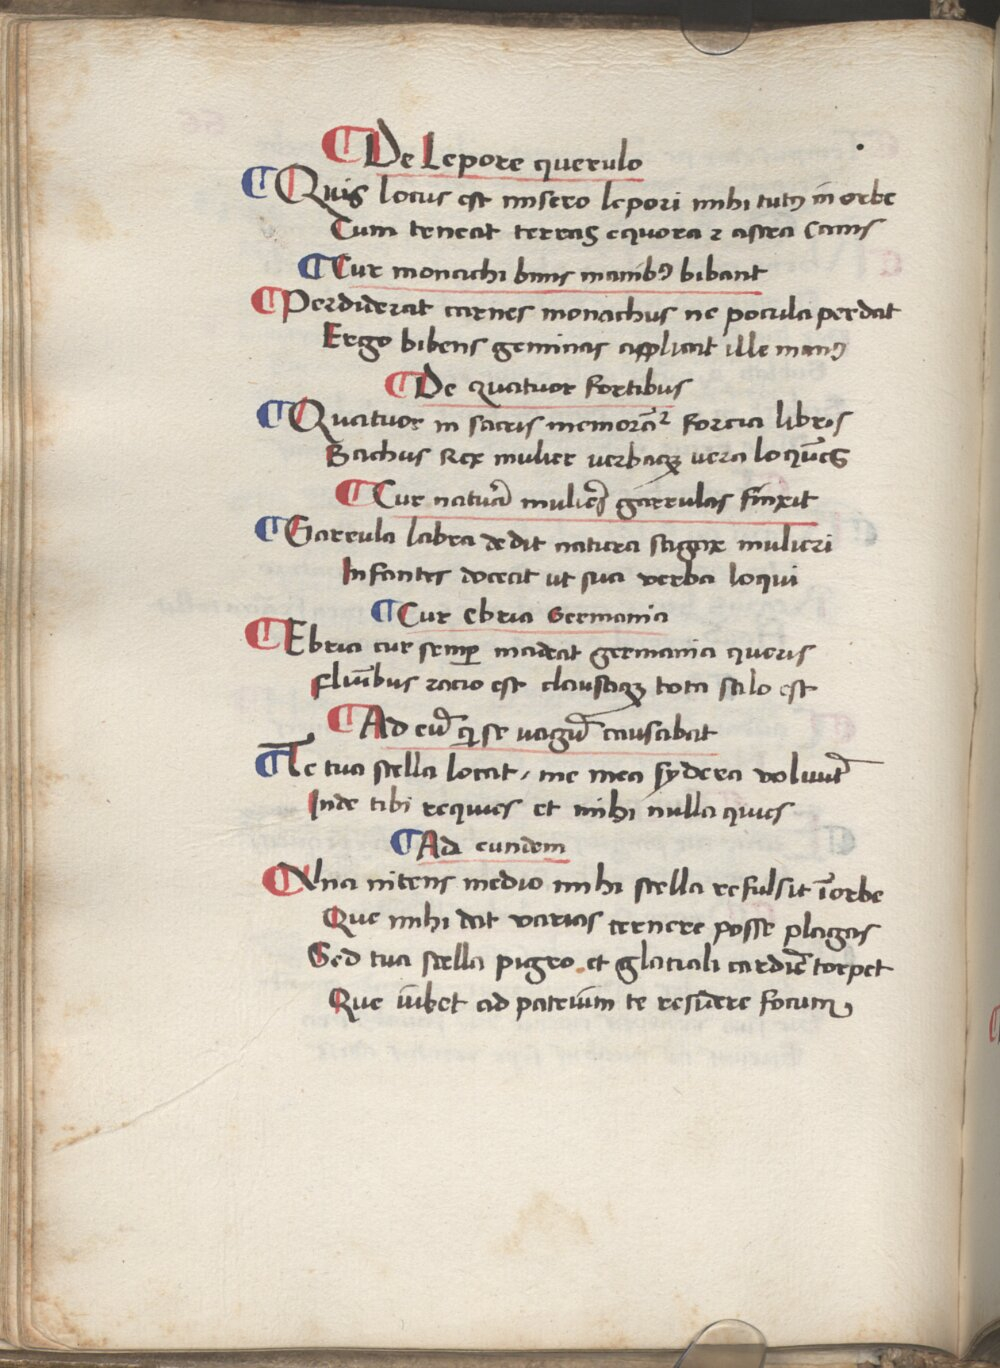 De Lepore querulo
Quis locus est misero lepori mihi tutꝰ in orbe
Cum teneat terras equora ⁊ astra Canis
Cur monachi binis manibꝰ bibant
Perdiderat carnes monachus ne pocula perdat
Ergo bibens geminas applicat ille manꝰ
De quatuor fortibus
Quatuor in sacris memorãt᷑ forcia libris
Bachus Rex mulier verbaqꝫ vera loquẽs
Cur natura mulieres garrulas finxit
Garrula labra dedit natura sagax mulieri
Infantes doceat ut sua verba loqui
Cur Ebria Germania
Ebria cur semꝑ madeat germania queris
Fluĩbus racio est clausaqꝫ tota salo est
Ad eũ qi se vagũ causabat
Te tua stella locat, me mea sydera voluũt
Inde tibi requies et mihi nulla quies
Ad eundem
Una nitens medio mihi stella refulsit ĩ orbe
Que mihi dat varias cernere posse plagas
Sed tua stella pigro et glaciali cardiẽ torpet
Que iubet ad patrium te residere focum